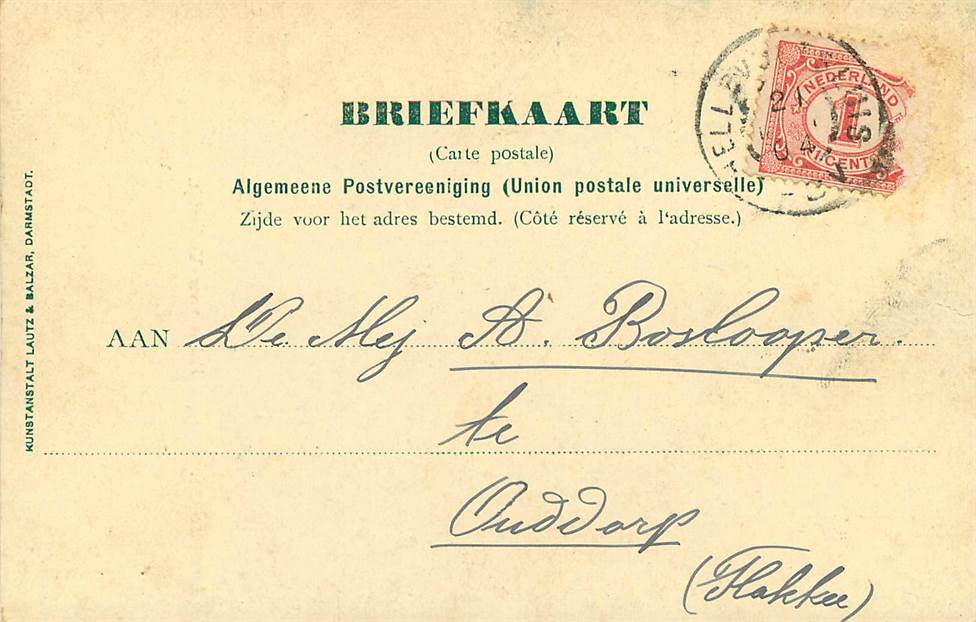 NEDERLAND
1
CENT
BRIEFKAART
(Carte postale)
Algemeene Postvereeniging (Union postale universelle)
Zijde voor het adres bestemd. (Côté réservé à l'adresse.)
AAN De Mej A. Boslooper.
te
Ouddorp
(Flakkee)
KUNSTANSTALT LAUTZ & BALZAR, DARMSTADT.